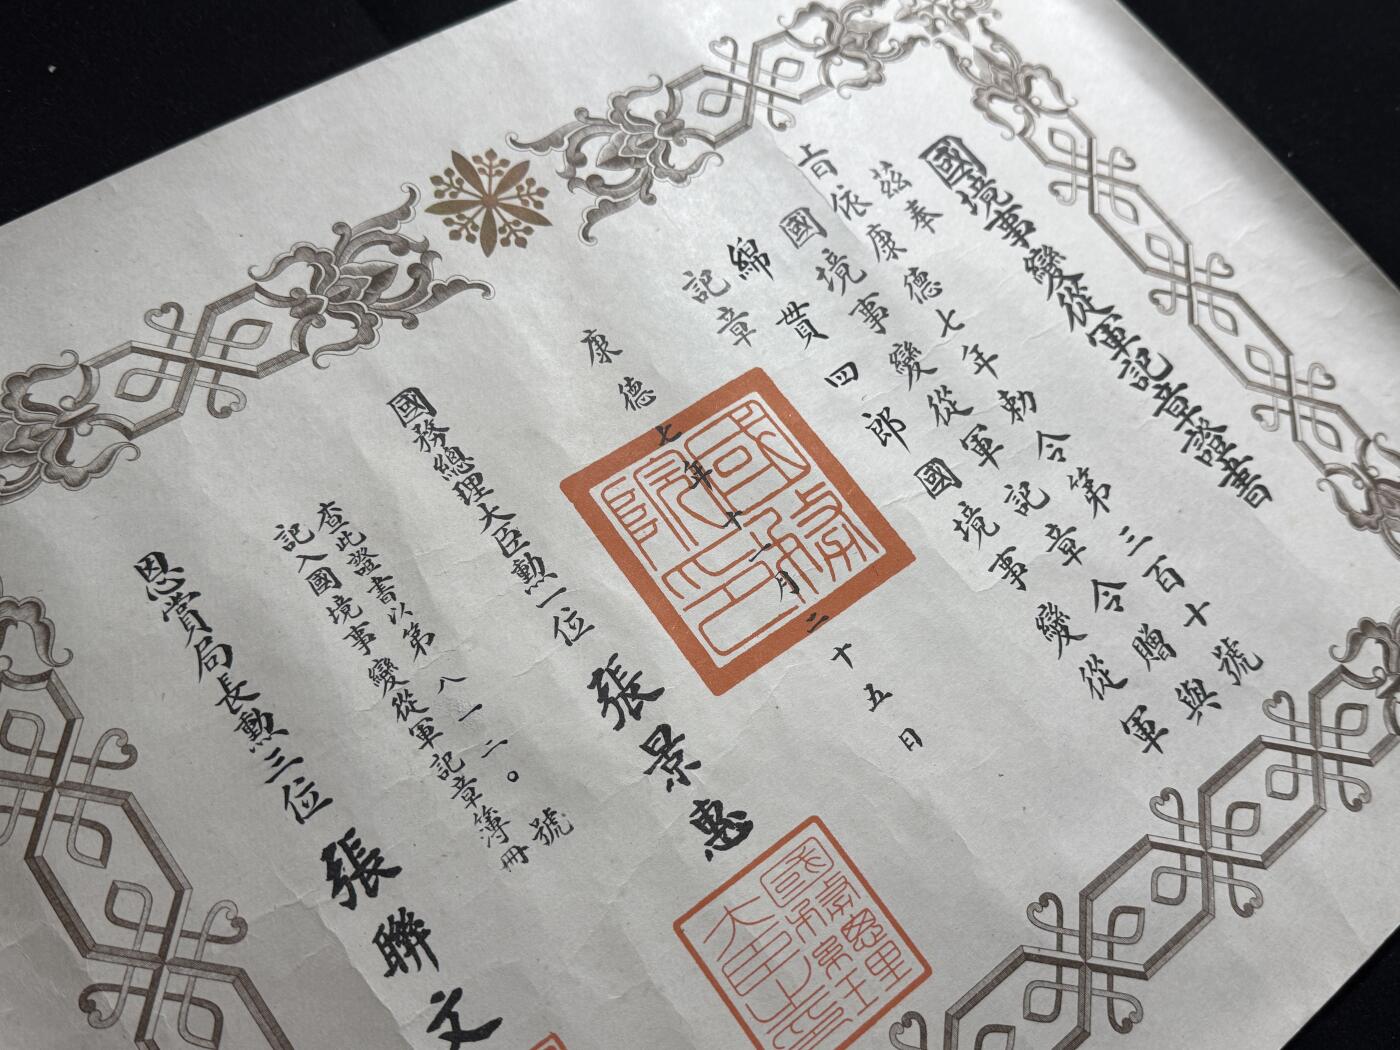 國境事變從軍記章證書
茲奉
旨依康德七年勅令第三百十號
國境事變從軍記章令贈與
綿貫四郎國境事變從軍
記章
康德七年十一月二十五日
國務院印
國務總理大臣勳一位張景惠
國務總理大臣之章
查此證書以第八一二〇號
記入國境事變從軍記章簿冊
恩賞局長勳三位張聯文